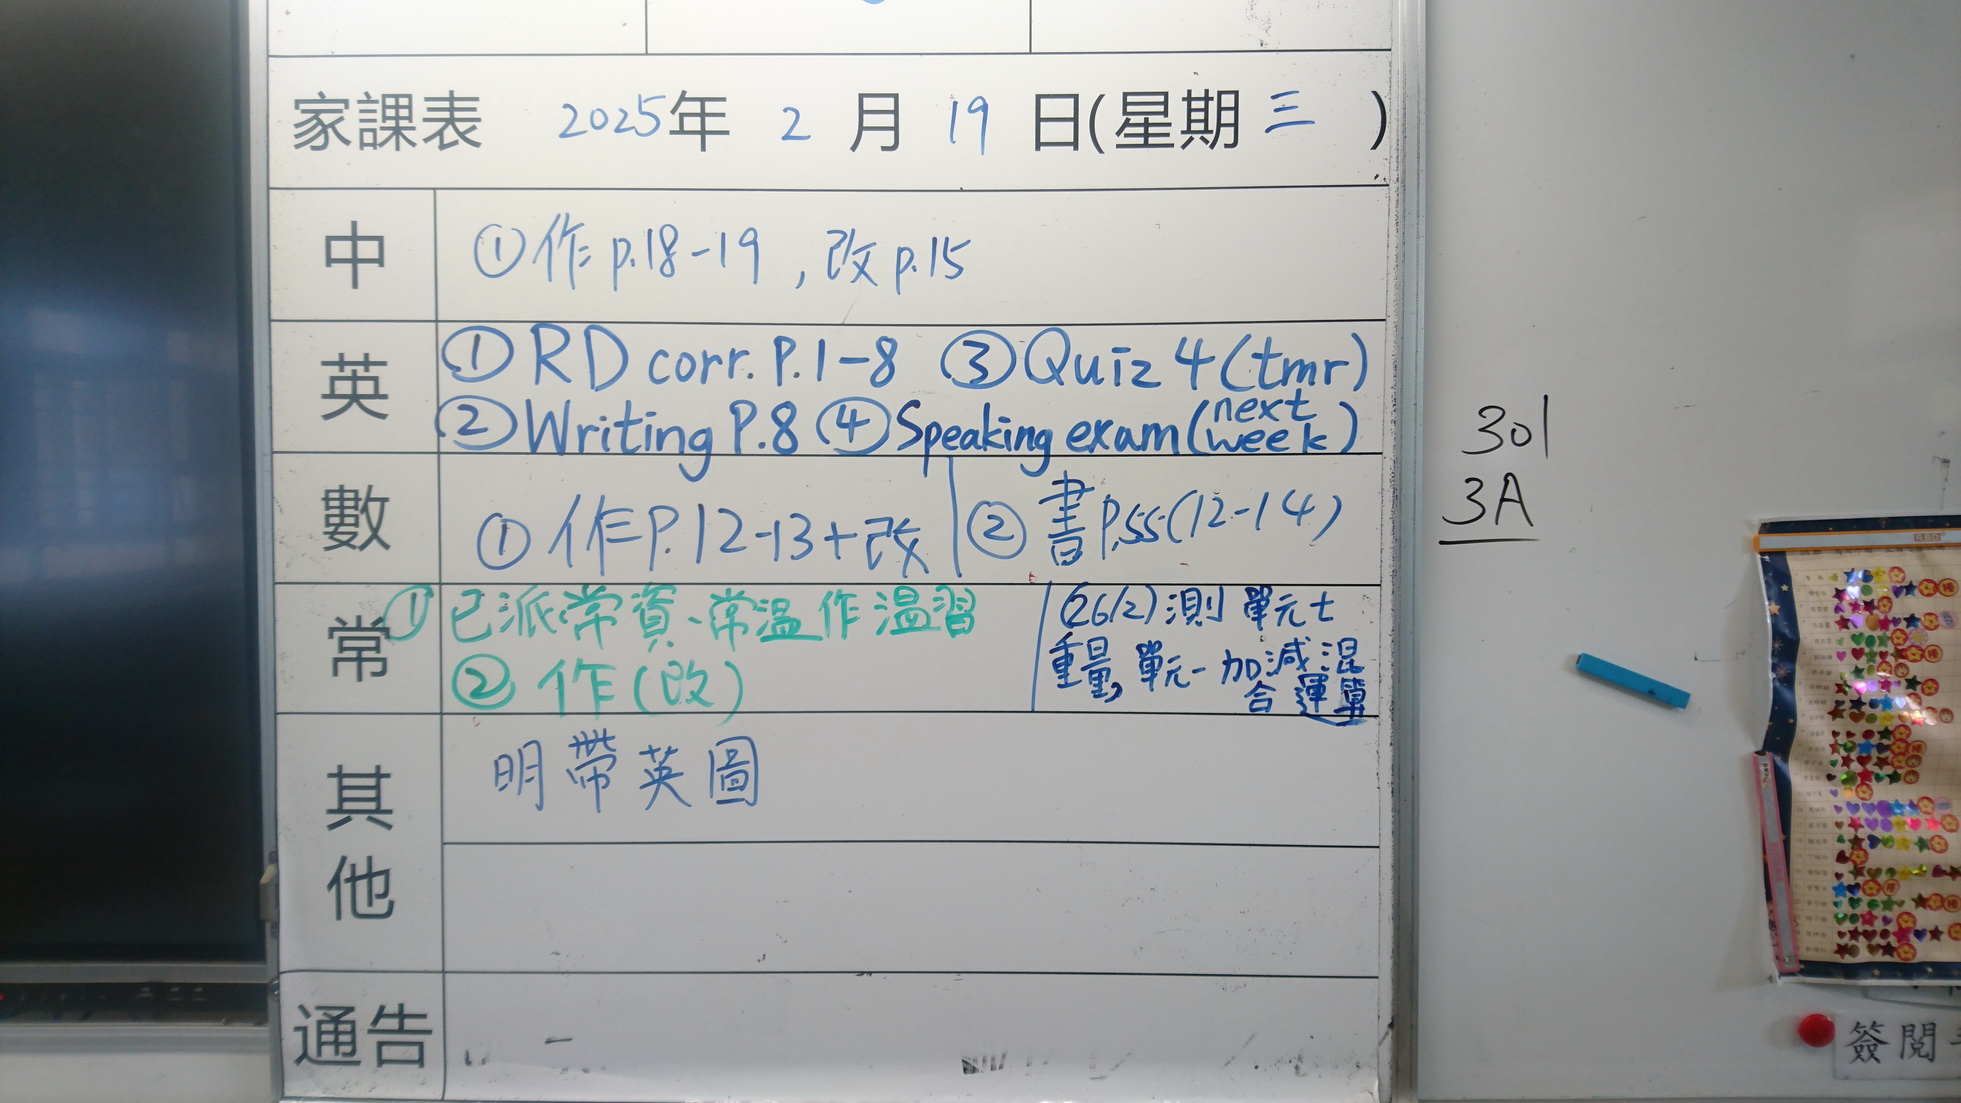 家課表 2025年 2 月 19 日(星期 三 )
中 ①作 p.18-19 , 改 p.15
英 ① RD corr. P.1-8 ③ Quiz 4 (tmr)
② Writing P.8 ④ Speaking exam (next week)
數 ① 作 P.12-13 + 改 ② 書 P.55 (12-14)
常 ① 已派常資、常溫作溫習
② 作 (改)
(26/2) 測 單元七
重量, 單元一 加減混
合運算
其他 明帶英圖
通告
301
3A
簽閱